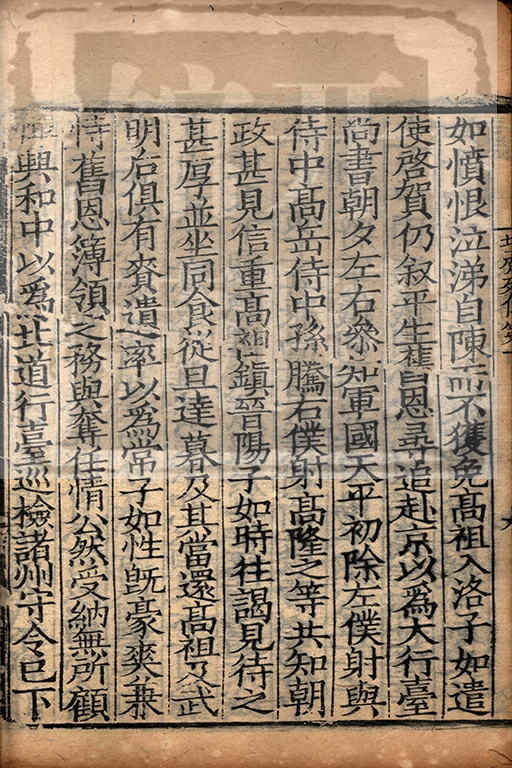 如憤恨泣涕自陳而不獲免髙祖入洛子如遣
使啓賀仍叙平生舊恩尋追赴京以為大行臺
尚書朝夕左右叅知軍國天平初除左僕射與
侍中髙岳侍中孫騰右僕射髙隆之等共知朝
政甚見信重髙祖鎮晉陽子如時往謁見待之
甚厚並坐同食從旦達暮及其當還髙祖及武
明后俱有賚遺率以為常子如性旣豪爽兼
恃舊恩簿領之務與奪任情公然受納無所顧
憚興和中以為北道行臺巡檢諸州守令已下